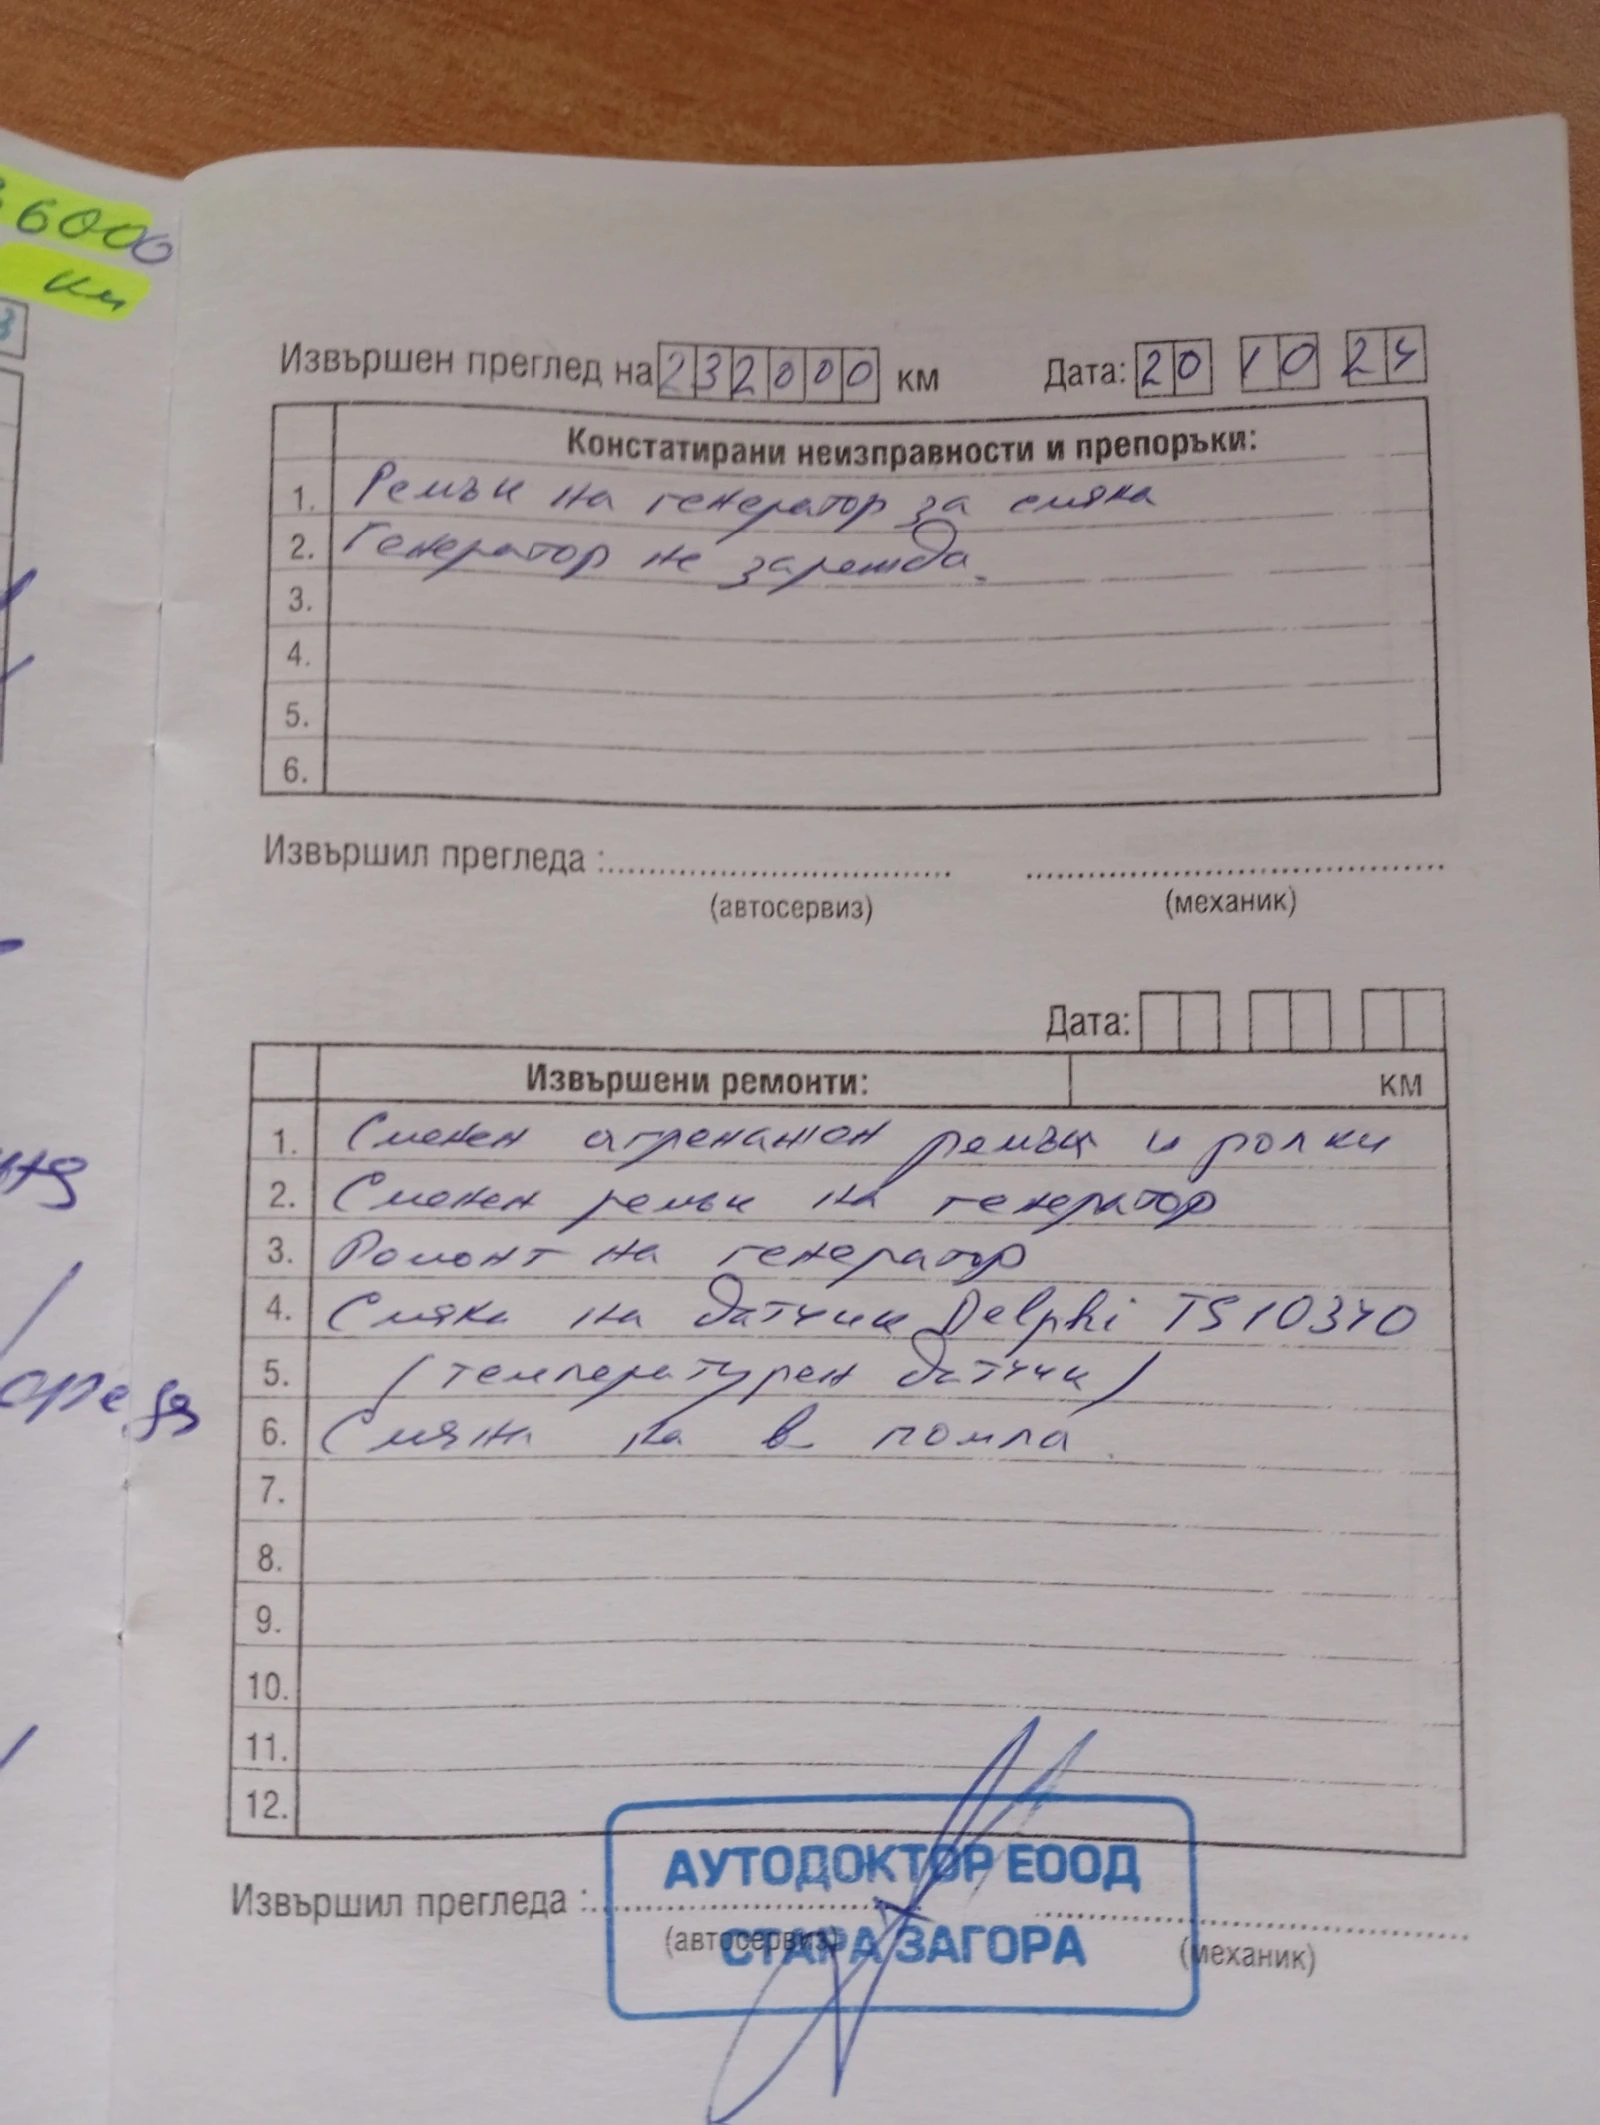 6000
км
Извършен преглед на 232000 км Дата: 20 10 24
Констатирани неизправности и препоръки:
1. Ремък на генератор за смяна
2. Генератор не зарежда.
3.
4.
5.
6.
Извършил прегледа :
(автосервиз) (механик)
Дата:
Извършени ремонти: км
1. Сменен ангренажен ремък и ролки
2. Сменен ремък на генератор
3. Ремонт на генератор
4. Смяна на датчик Delphi TS10340
5. (температурен датчик)
6. Смяна на в помпа
7.
8.
9.
10.
11.
12.
АУТОДОКТОР ЕООД
Извършил прегледа :
(автосервиз) (механик)
СТАРА ЗАГОРА